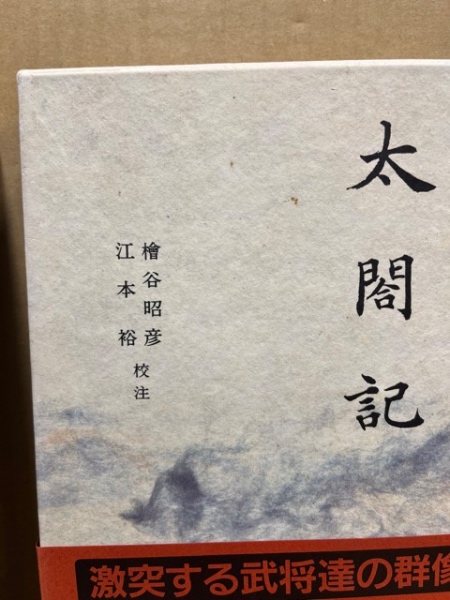 太閤記
檜谷昭彦
江本裕
校注
激突する武将達の群像